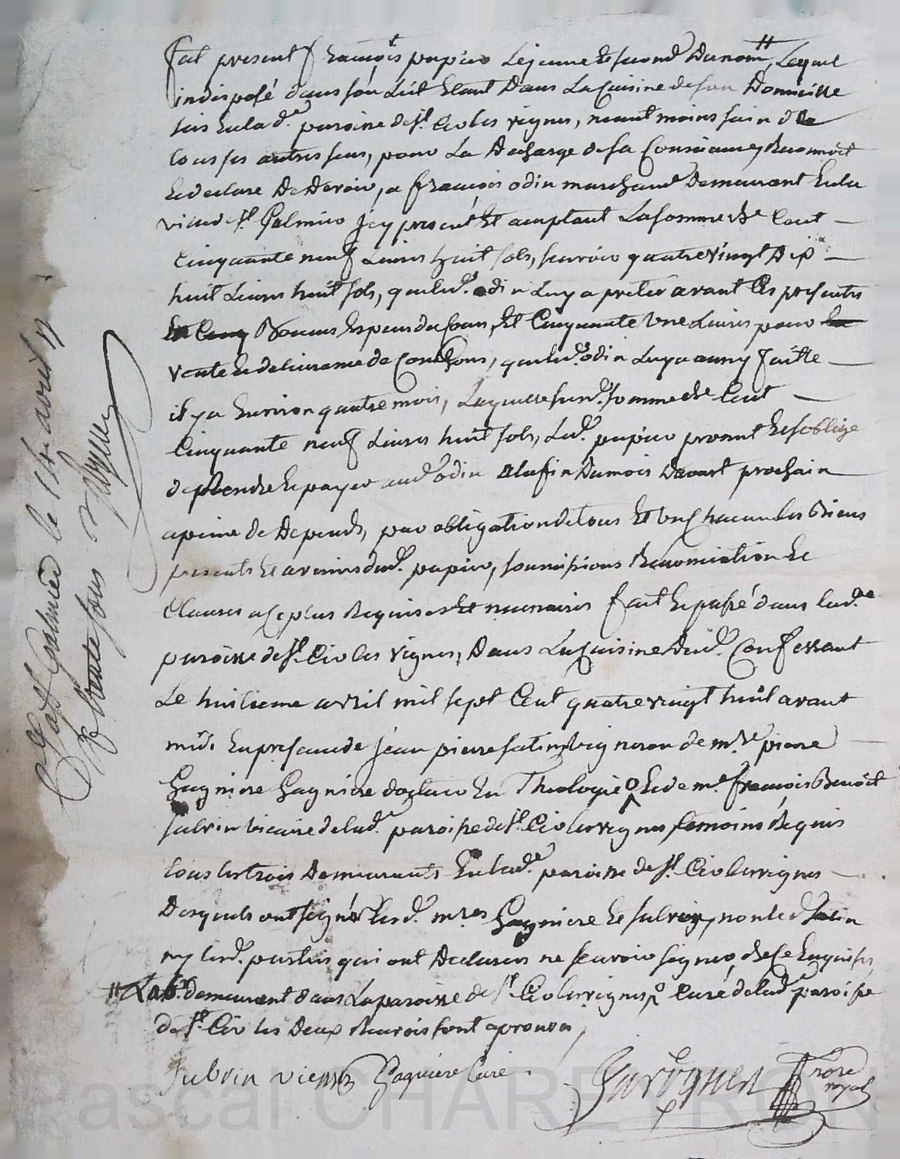 fut present françois papieu Lejeune & second Dunom // Lequel
indisposé dans son Lit Etant Dans La Cuisine de son Domicille
sis En lad.e paroisse de S.t Cir les vignes, neant moins sain de
tous ses autres sens, pour La Decharge de sa Conscience, Reconnoit
Et declare De Devoir, a françois odin marchand Demeurant En la
ville de S.t Galmier Icy present Et aceptant La somme de Cent
Cinquante neuf Livres huit sols, scavoir quatrevingt Dix
huit Livres huit sols, que led. odin Luy a preter avant Ces presentes
En Bonnes Especes du Cours, Et Cinquante Une Livres pour
vente & delivrance de Cochons, que led. odin Luy a aussy faitte
il y a Environ quatre mois, Laquelle susd. somme de Cent
Cinquante neuf Livres huit sols, Led. papieu promet & s'oblige
de Rendre & payer aud. odin a la fin Du mois Daoust prochain
a peine de Depends, par obligation de tous Et Un Chacun les Biens
presents & avenirs dud. papieu, soumissions Renonciation &
Clauses a ce plus Requises & necessaires fait & passé dans lad.e
paroisse de S.t Cir les vignes, Dans La Cuisine dud. Confessant
Le huitieme avril mil sept Cent quatrevingt huit avant
midi En presence de jean pierre vigneron de m.re pierre
Gagniere Gagniere docteur En Theologie & de m.e françois Benoit
Julvin vicaire de lad. paroisse de S.t Cir les vignes temoins Requis
tous les trois Demeurants En lad.e paroisse de S.t Cir les vignes
Desquels ont signé lesd. mres Gagniere & Julvin, non led.
ny lesd. parties qui ont Declarees ne scavoir signer, de ce Enquises
// demeurant dans La paroisse de S.t Cir les vignes, Curé de lad. paroisse
de S.t Cir les Deux Renvois sont aprouves,
Julvin vicaire Gagniere Curé
not re
royal
Galmier le 14 avril
R trente sous
Pascal CHAREYRON